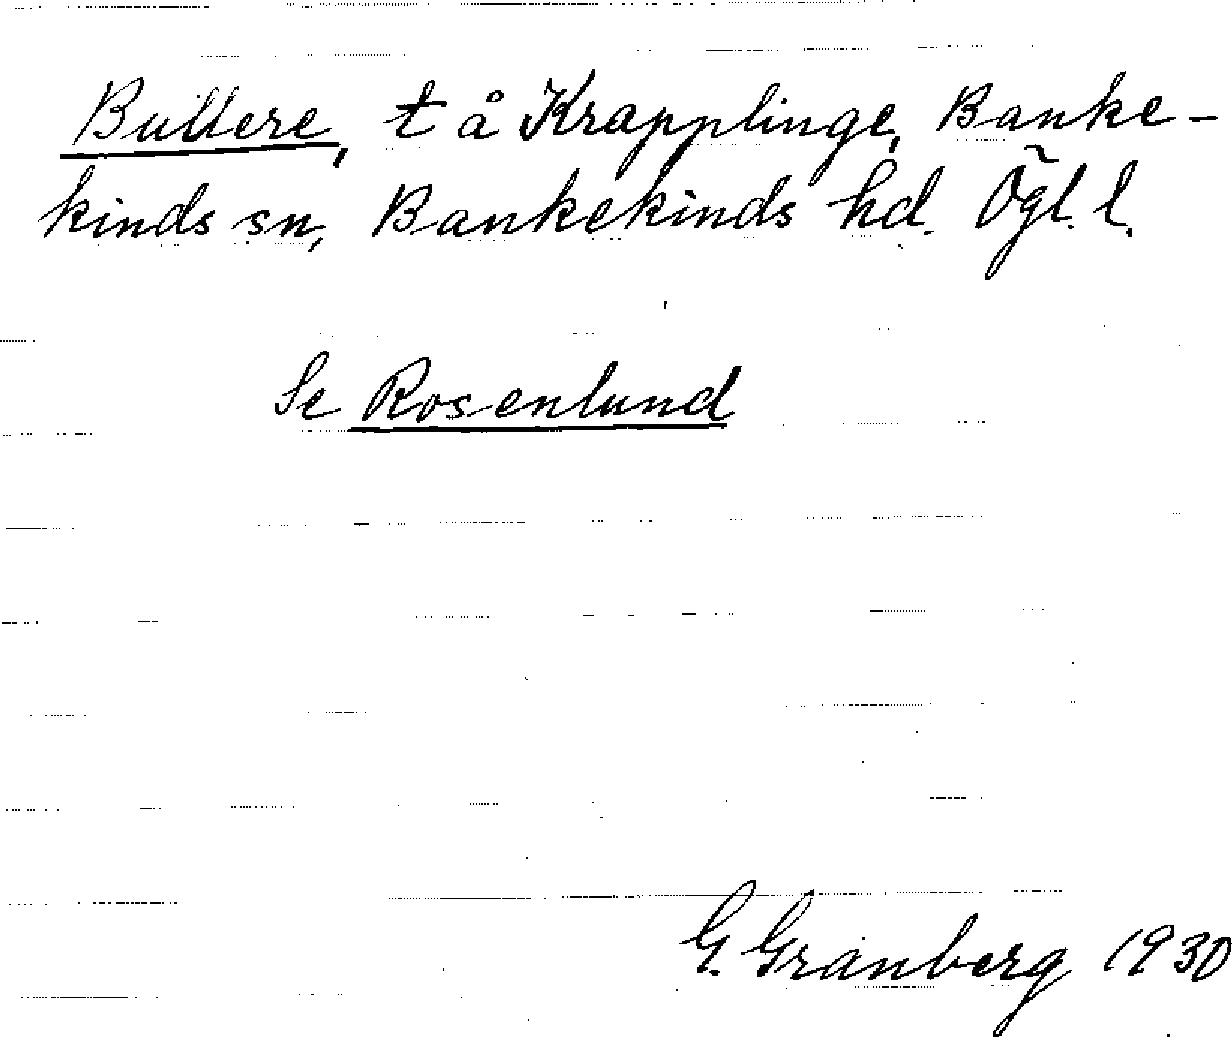 Bullere, t å Krapplinge, Banke-
kinds sn, Bankekinds hd. Ögl. l.
Se Rosenlund
G. Granberg 1930